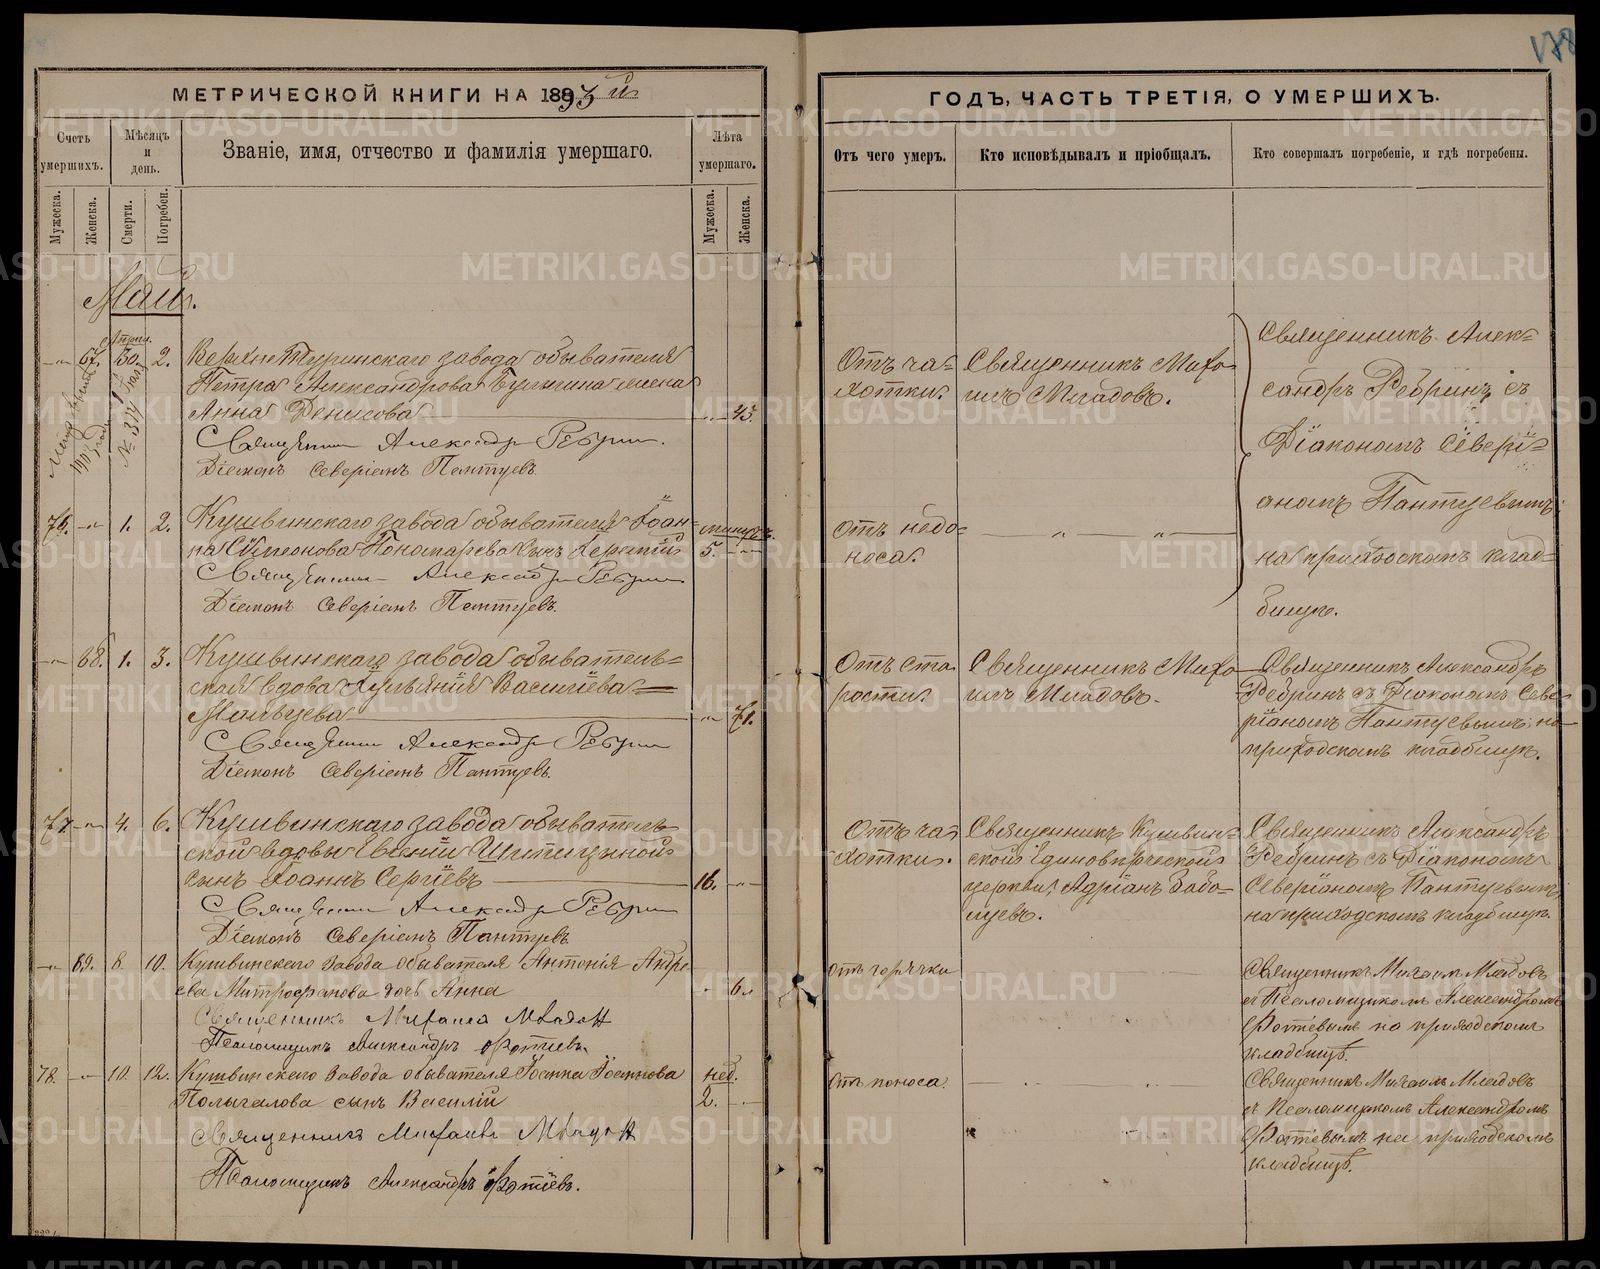 178
МЕТРИЧЕСКОЙ КНИГИ НА 1893й
ГОДЪ, ЧАСТЬ ТРЕТІЯ, О УМЕРШИХЪ.
Счетъ умершихъ.
Мужеска.
Женска.
Мѣсяцъ и день.
Смерти.
Погребен.
Званіе, имя, отчество и фамилія умершаго.
Лѣта умершаго.
Мужеска.
Женска.
Отъ чего умеръ.
Кто исповѣдывалъ и пріобщалъ.
Кто совершалъ погребеніе, и гдѣ погребены.
Май.
Апрѣл.
67. 30. 2. Верхне Туринскаго завода обывателя
Петра Александрова жена
Анна Денисова 43.
Священникъ Александръ Ребринъ.
Діаконъ Северіанъ Пантуевъ
Отъ ча-
хотки.
Священникъ Миха-
илъ Младовъ.
Священникъ Алек-
сандръ Ребринъ съ
Діакономъ Севері-
аномъ Пантуевымъ
на приходскомъ клад-
бищѣ.
76. 1. 2. Кушвинскаго завода обывателя Іоан-
на Сѵмеонова Пономарева сынъ
минутъ
5.
Священникъ Александръ Ребринъ
Діаконъ Северіанъ Пантуевъ.
Отъ недо-
носа.
68. 1. 3. Кушвинскаго завода обыватель-
ская вдова Васильева
Мальцева 71.
Священникъ Александръ Ребринъ
Діаконъ Северіанъ Пантуевъ.
Отъ ста-
рости.
Священникъ Миха-
илъ Младовъ.
Священникъ Александръ
Ребринъ съ Діакономъ Севе-
ріаномъ Пантуевымъ, на
приходскомъ кладбищѣ.
77. 4. 6. Кушвинскаго завода обыватель-
ской вдовы Евгеніи Шипицыной
сынъ Іоаннъ Сергіевъ 16.
Священникъ Александръ Ребринъ
Діаконъ Северіанъ Пантуевъ
Отъ ча-
хотки.
Священникъ Кушвин-
ской Единовѣрческой
церкви, Адріанъ
Священникъ Александръ
Ребринъ съ Діакономъ
Северіаномъ Пантуевымъ,
на приходскомъ кладбищѣ.
69. 8. 10. Кушвинскаго завода обывателя Антонія Андре
ева Митрофанова дочь Анна 6
Священникъ Михаилъ Младовъ
Псаломщикъ Александръ Фотіевъ.
отъ горячки
Священникъ Михаилъ Младовъ
съ Псаломщикомъ Александромъ
Фотіевымъ на приходскомъ
кладбищѣ.
78. 10. 12. Кушвинскаго завода обывателя Іоанна Іоаннова
Полыгалова сынъ Василій
нед.
2.
Священникъ Михаилъ Младовъ
Псаломщикъ Александръ Фотіевъ.
Отъ поноса.
Священникъ Михаилъ Младовъ
съ Псаломщикомъ Александромъ
Фотіевымъ на приходскомъ
кладбищѣ.
METRIKI.GASO-URAL.RU